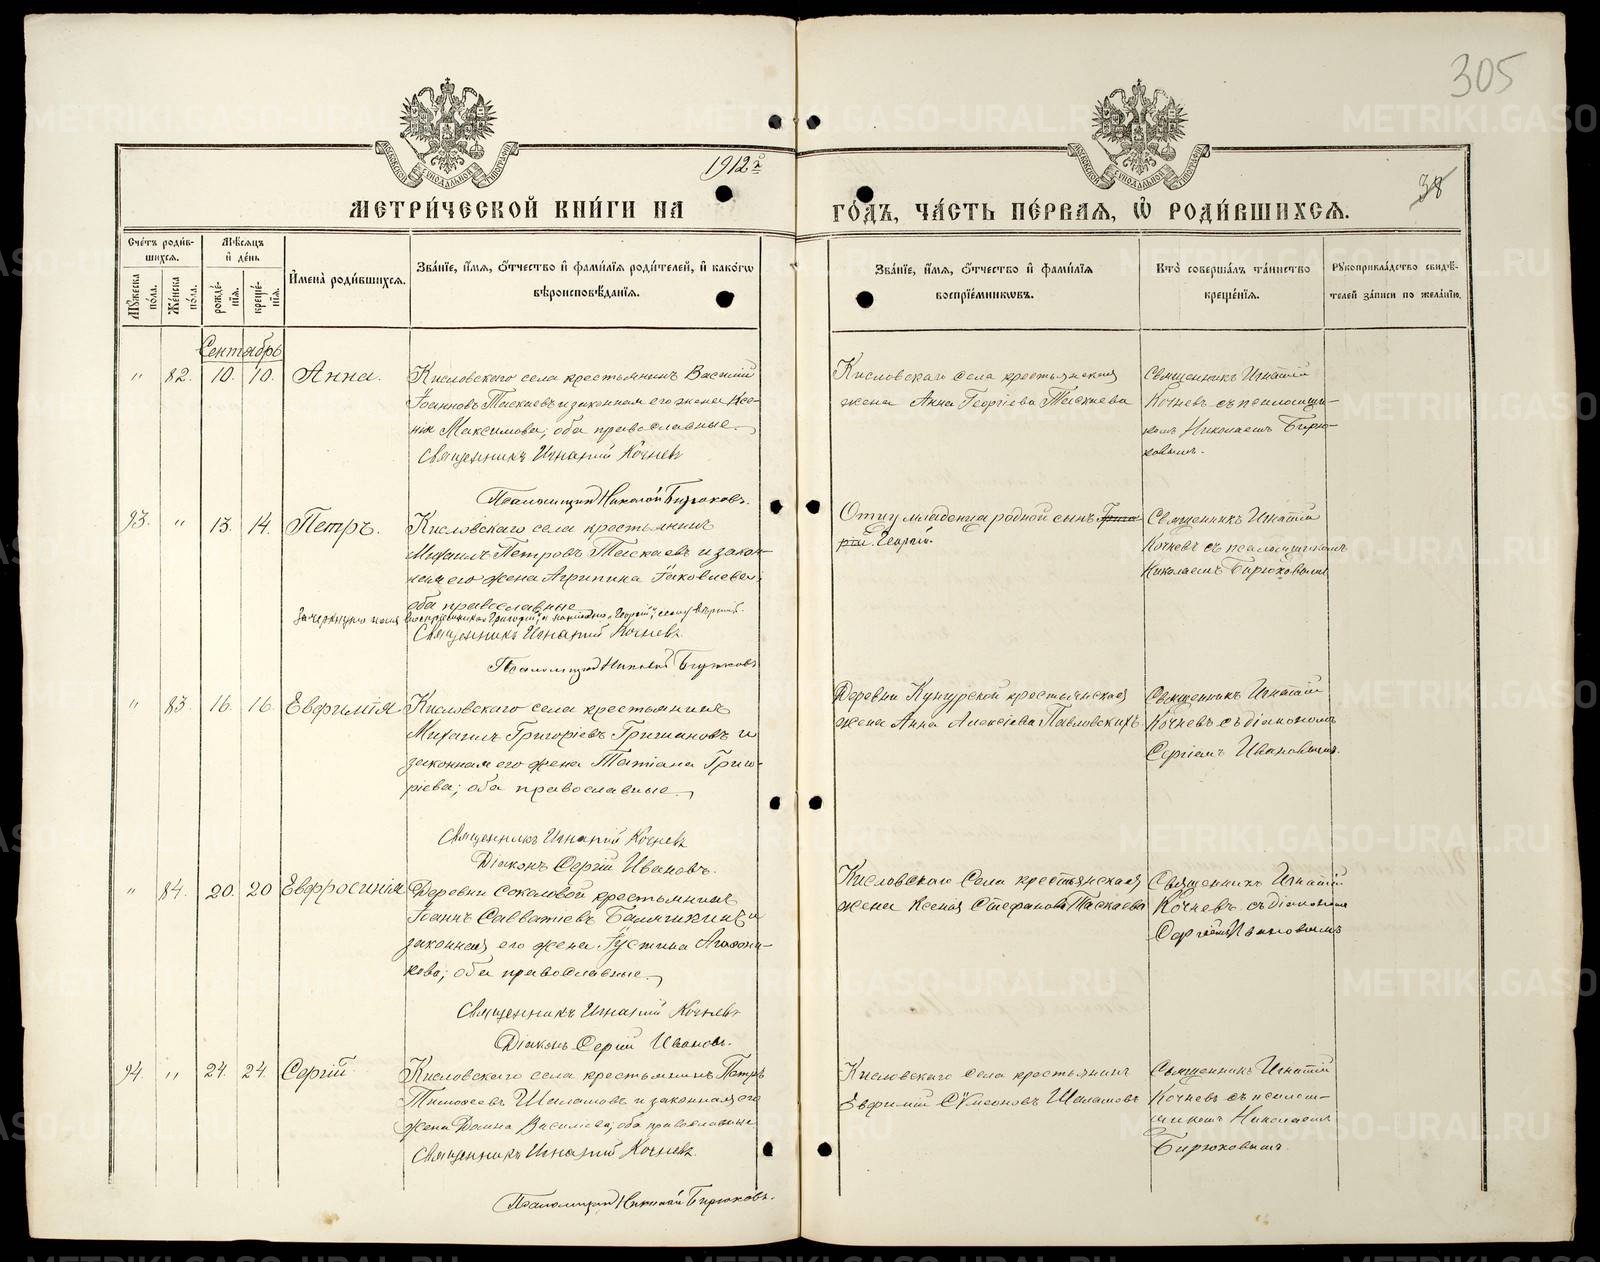 305
1912 г.
38
МЕТРИ́ЧЕСКОЙ КНИ́ГИ НА
ГО́ДЪ, ЧА́СТЬ ПЕ́РВАЯ, Ѡ РОДИ́ВШИХСЯ.
Сче́тъ роди́в-
шихся.
Му́жеска
по́ла.
Же́нска
по́ла.
Мѣ́сяцъ
и́ де́нь
рожде́-
нїя.
креще́-
нїя.
И҆мена̀ роди́вшихся.
Зва́нїе, и҆́мя, ѻ҆́тчество и҆ фами́лїя роди́телей, и҆ како́гѡ
вѣроисповѣ́данїя.
Зва́нїе, и҆́мя, ѻ҆́тчество и҆ фами́лїя
воспрїе́мникѡвъ.
Кто̀ соверша́лъ та́инство
креще́нїя.
Рꙋкоприкла́дство свидѣ́-
телей за́писи по жела́нїю.
Сентябрь
" 82. 10. 10. Анна.
Кисловскаго села крестьянинъ Василій
Іоанновъ Таскаевъ и законная его жена Ксе-
нія Максимова; оба православные.
Священникъ Игнатій Кочневъ
Псаломщикъ Николай Бирюковъ.
Кисловскаго села крестьянская
жена Анна Георгіева Таскаева
Священникъ Игнатій
Кочневъ съ псаломщи-
комъ Николаемъ Бирю-
ковымъ.
93. " 13. 14. Петръ.
Кисловскаго села крестьянинъ
Михаилъ Петровъ Таскаевъ и закон-
ная его жена Агрипина Іаковлева;
оба православные
Зачеркнуто имя воспріемника "Григорій", и написано "Георгій",
Священникъ Игнатій Кочневъ.
Псаломщикъ Николай Бирюковъ
Отцу младенца родной сынъ Григо-
рій. Георгій.
Священникъ Игнатій
Кочневъ съ псаломщикомъ
Николаемъ Бирюковымъ
" 83 16. 16. Евфимія
Кисловскаго села крестьянинъ
Михаилъ Григоріевъ Гришановъ и
законная его жена Татіана Григо-
ріева; оба православные.
Священникъ Игнатій Кочневъ
Діаконъ Сергій Ивановъ.
Деревни Кунгурской крестьянская
жена Анна Алексіева Павловскихъ
Священникъ Игнатій
Кочневъ съ діакономъ
Сергіемъ Ивановымъ.
" 84. 20. 20 Евфросинія
Деревни Соколовой крестьянинъ
Іоаннъ Савватіевъ и
законная его жена Іустина Агафони-
кова; оба православные.
Священникъ Игнатій Кочневъ
Діаконъ Сергій Ивановъ.
Кисловскаго села крестьянская
жена Ксенія Стефанова Таскаева
Священникъ Игнатій
Кочневъ съ діакономъ
Сергіемъ Ивановымъ
94. " 24. 24. Сергій
Кисловскаго села крестьянинъ Петръ
Тимофеевъ Шаламовъ и законная его
жена Домна Василіева; оба православные
Священникъ Игнатій Кочневъ.
Псаломщикъ Николай Бирюковъ.
Кисловскаго села крестьянинъ
Евфимій Сѵмеоновъ Шаламовъ
Священникъ Игнатій
Кочневъ съ псалом-
щикомъ Николаемъ
Бирюковымъ.
METRIKI.GASO-URAL.RU